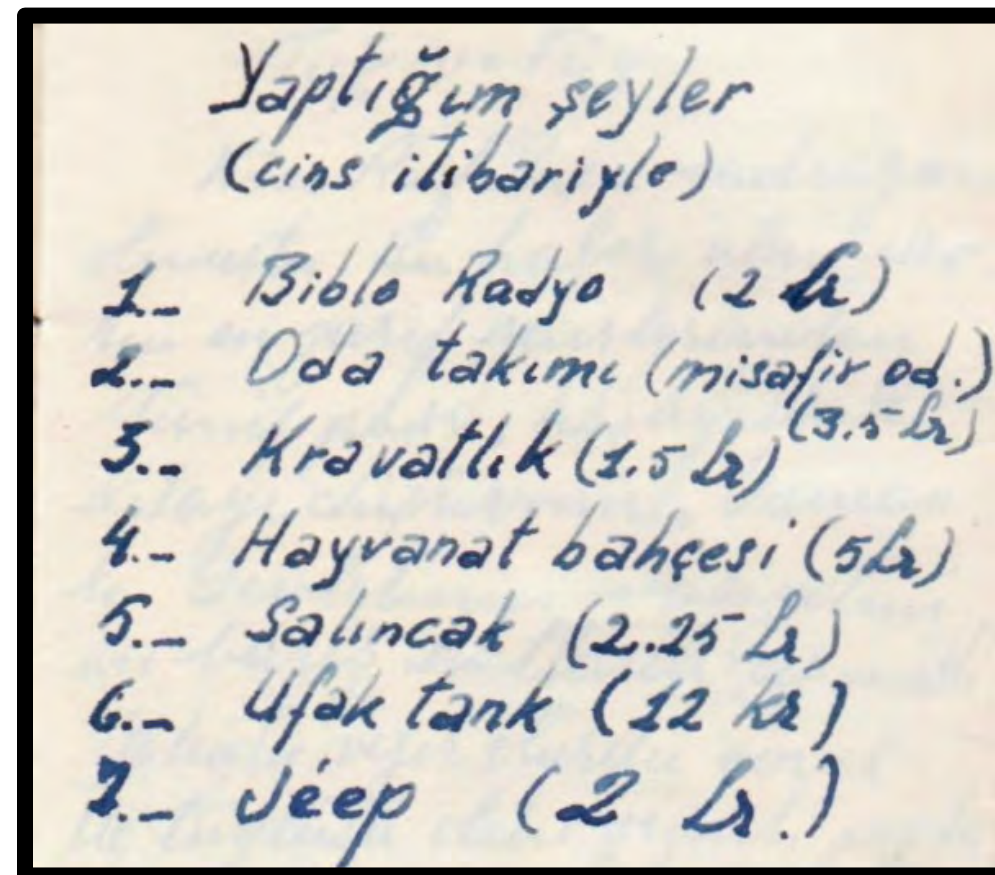 Yaptığım şeyler
(cins itibariyle)
1.- Biblo Radyo (2 Lr)
2.- Oda takımı (misafir od.)
(3.5 Lr)
3.- Kravatlık (1.5 Lr)
4.- Hayvanat bahçesi (5 Lr)
5.- Salıncak (2.25 Lr)
6.- Ufak tank (12 kr)
7.- Jéep (2 Lr.)